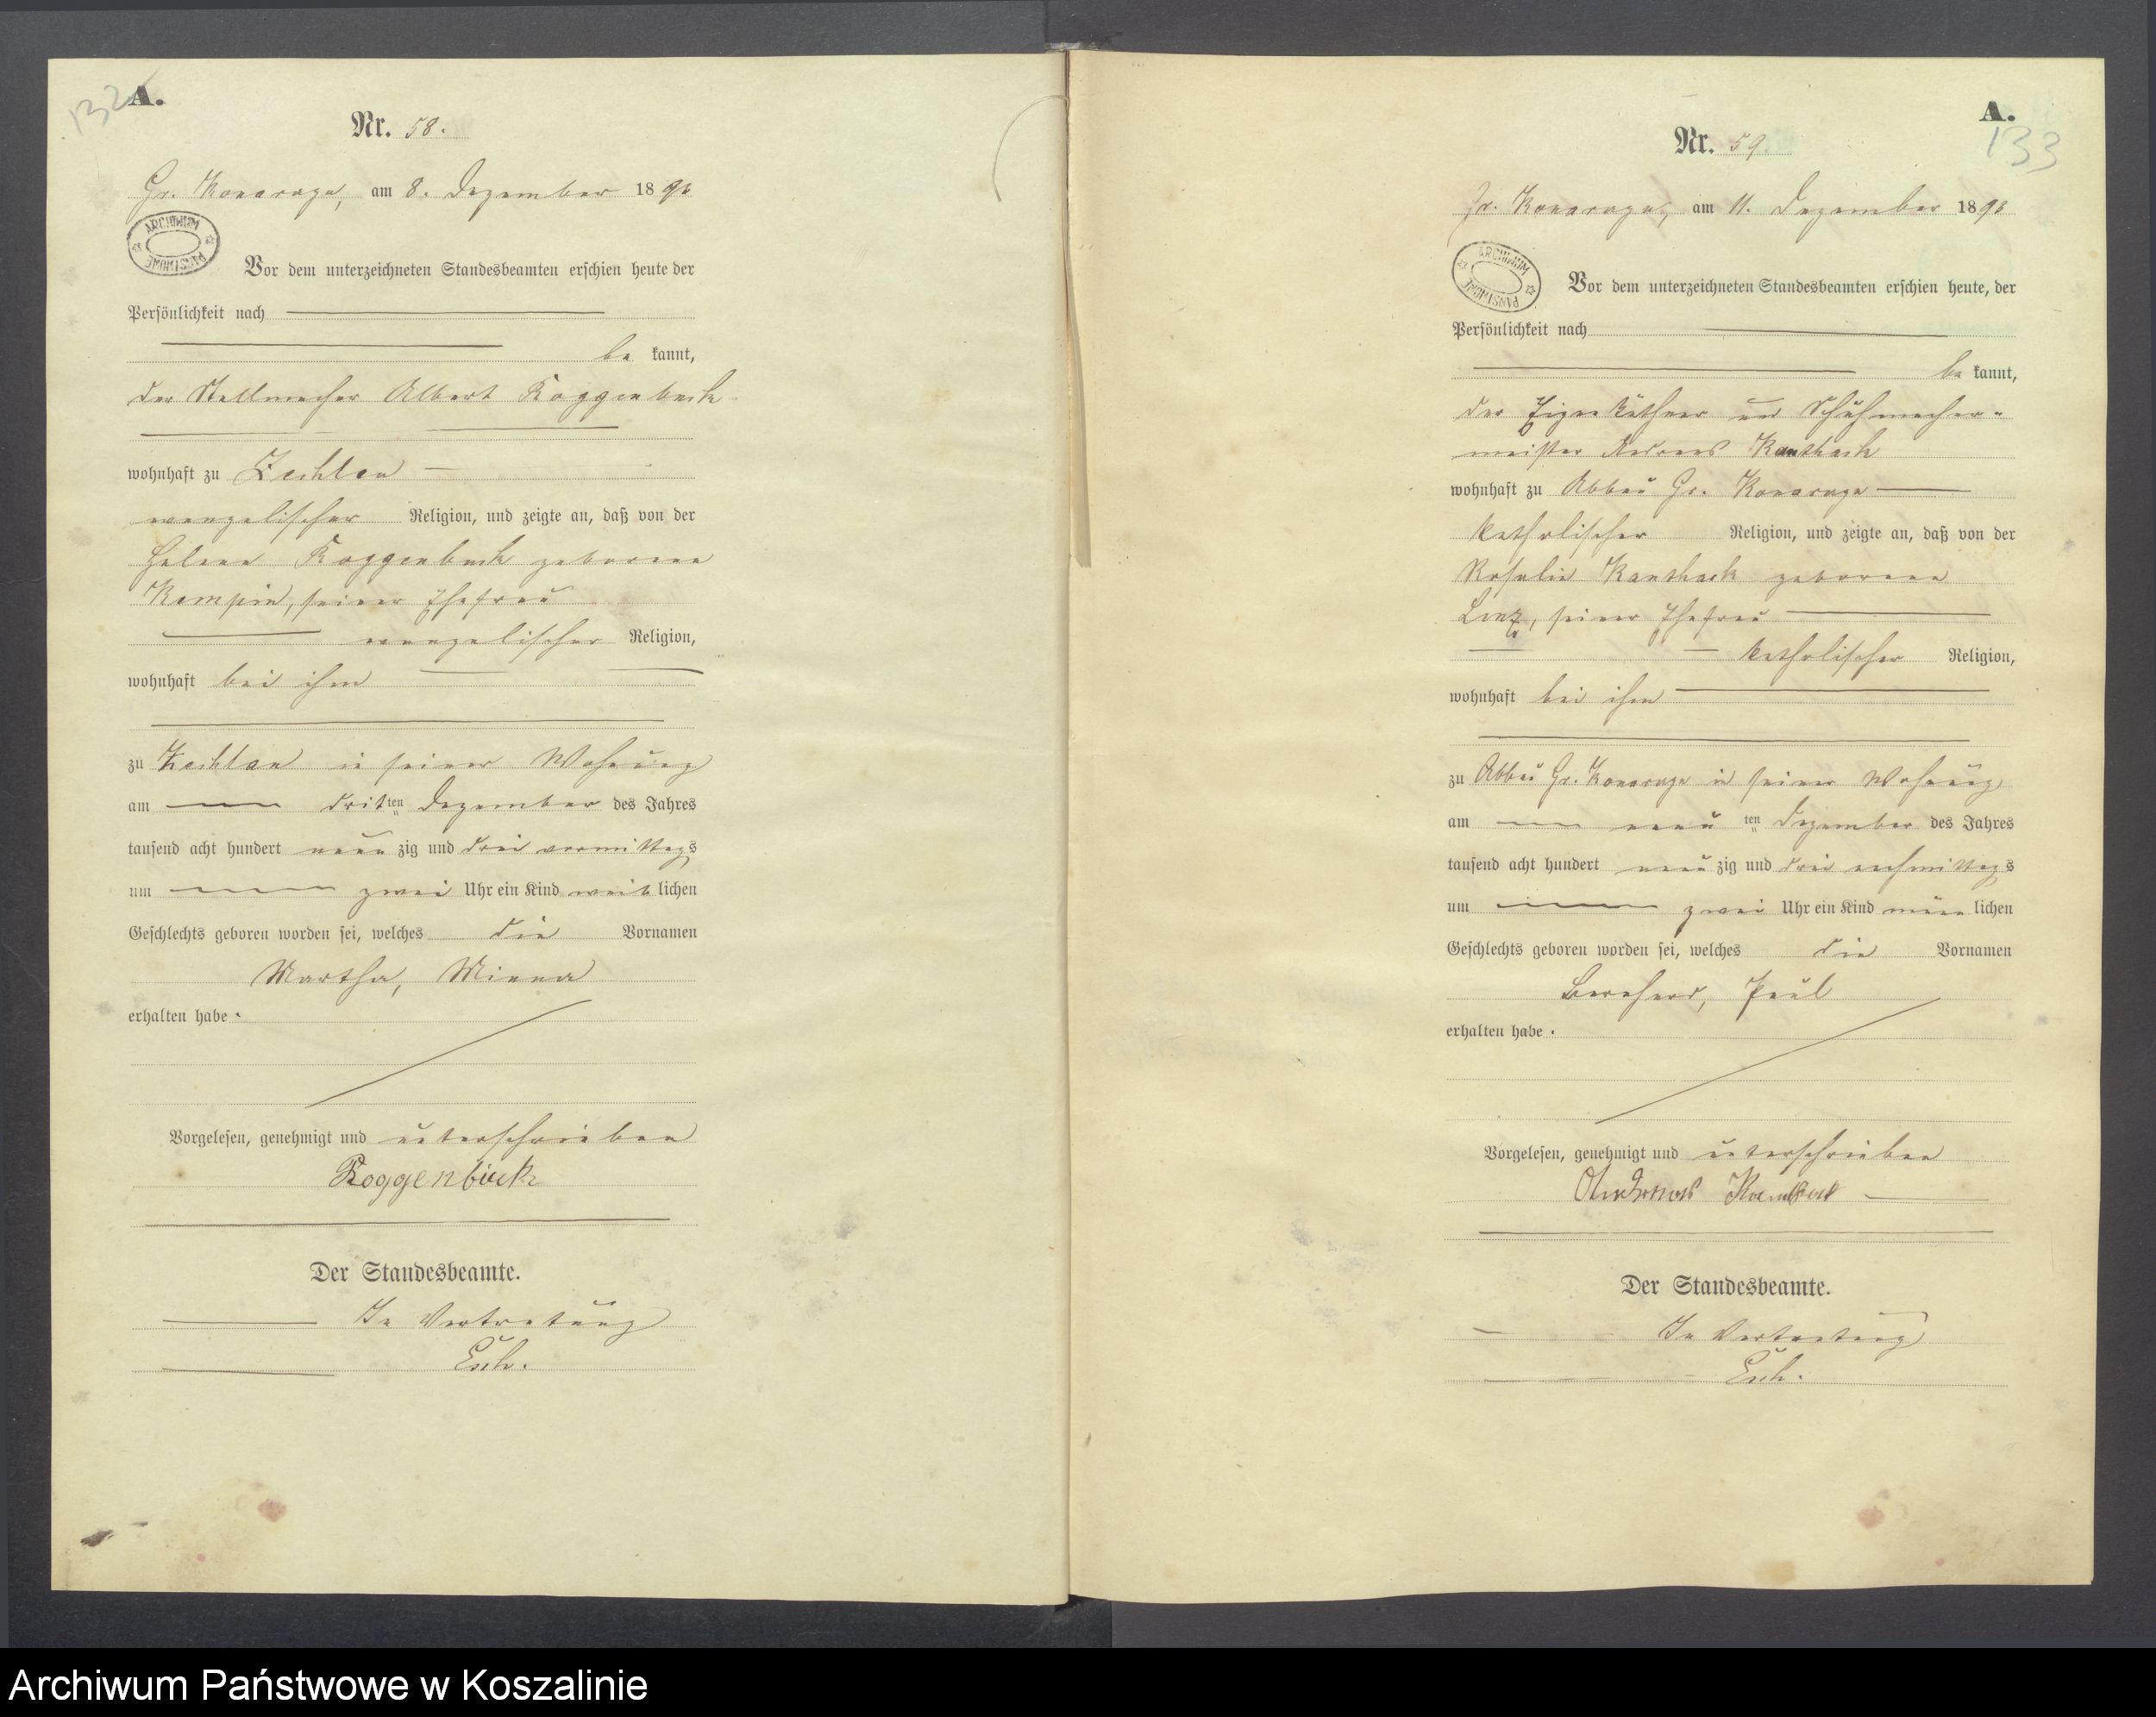 132
A.
Nr. 58.
Gr. Konarczyn, am 8. Dezember 1893
ARCHIWUM PAŃSTWOWE
Vor dem unterzeichneten Standesbeamten erschien heute der
Persönlichkeit nach
be kannt,
der Stellmacher Albert Roggenbuck
wohnhaft zu Zechlau
evangelischer Religion, und zeigte an, daß von der
Helene Roggenbuck geborene
Kempin, seiner Ehefrau
evangelischer Religion,
wohnhaft bei ihm
zu Zechlau in seiner Wohnung
am dritten Dezember des Jahres
tausend acht hundert neunzig und drei vormittags
um zwei Uhr ein Kind weiblichen
Geschlechts geboren worden sei, welches die Vornamen
Martha, Minna
erhalten habe.
Vorgelesen, genehmigt und unterschrieben
Roggenbuck
Der Standesbeamte.
In Vertretung
A.
133
Nr. 59
Gr. Konarczyn, am 11. Dezember 1893
ARCHIWUM PAŃSTWOWE
Vor dem unterzeichneten Standesbeamten erschien heute, der
Persönlichkeit nach
be kannt,
der Eigenkäthner und Schuhmacher-
meister Andreas Kanthack
wohnhaft zu Abbau Gr. Konarczyn
katholischer Religion, und zeigte an, daß von der
Rosalie Kanthack geborene
seiner Ehefrau
katholischer Religion,
wohnhaft bei ihm
zu Abbau Gr. Konarczyn in seiner Wohnung
am neunten Dezember des Jahres
tausend acht hundert neunzig und drei nachmittags
um zwei Uhr ein Kind männlichen
Geschlechts geboren worden sei, welches die Vornamen
Bernhard, Paul
erhalten habe.
Vorgelesen, genehmigt und unterschrieben
Andreas Kanthack
Der Standesbeamte.
In Vertretung
Archiwum Państwowe w Koszalinie